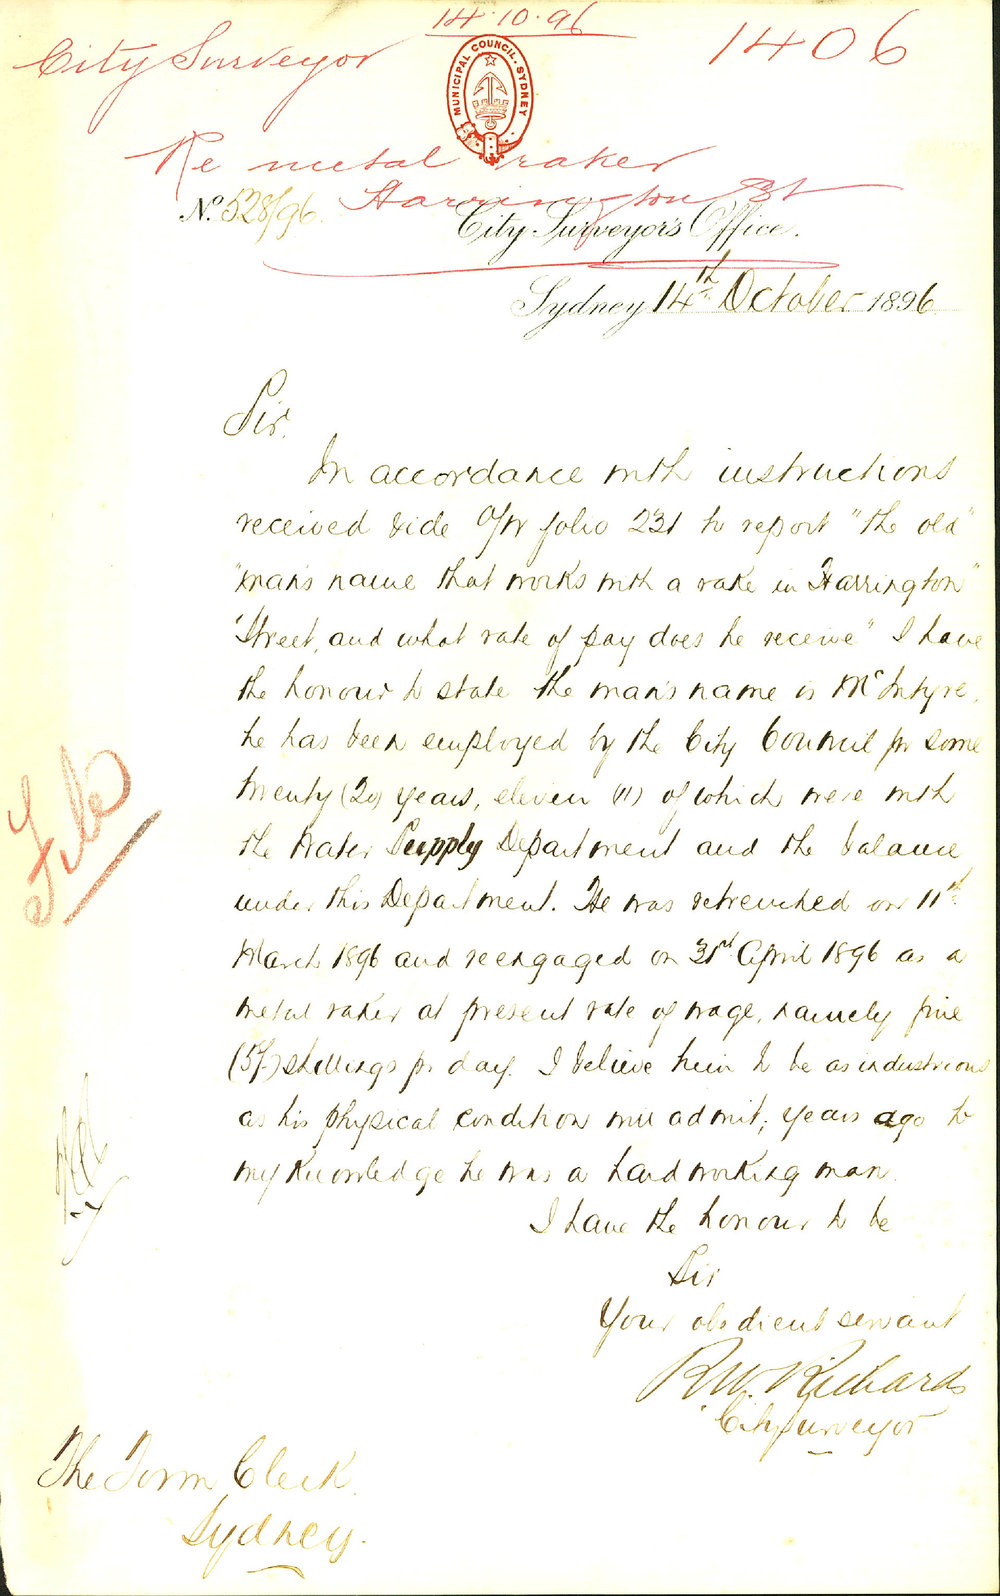 14.10.96
City Surveyor
1406
MUNICIPAL COUNCIL. SYDNEY
Re metal raker
Harrington St
No. 528/96.
City Surveyor's Office.
Sydney 14th October 1896
Sir.
In accordance with instructions
received vide O/W folio 231 to report "the old"
"man's name that works with a rake in Harrington"
"Street, and what rate of pay does he receive" I have
the honour to state the man's name is McIntyre.
he has been employed by the City Council for some
twenty (20) years, eleven (11) of which were with
the Water Supply Department and the balance
under this Department. He was retrenched on 11th
March 1896 and reengaged on 31st April 1896 as a
metal raker at present rate of wage, namely five
(5/-) shillings pr day. I believe him to be as industrious
as his physical condition will admit; years ago to
my knowledge he was a hard working man.
I have the honour to be
Sir
Your obedient servant
R.W. Richards
City Surveyor
File
The Town Clerk.
Sydney.